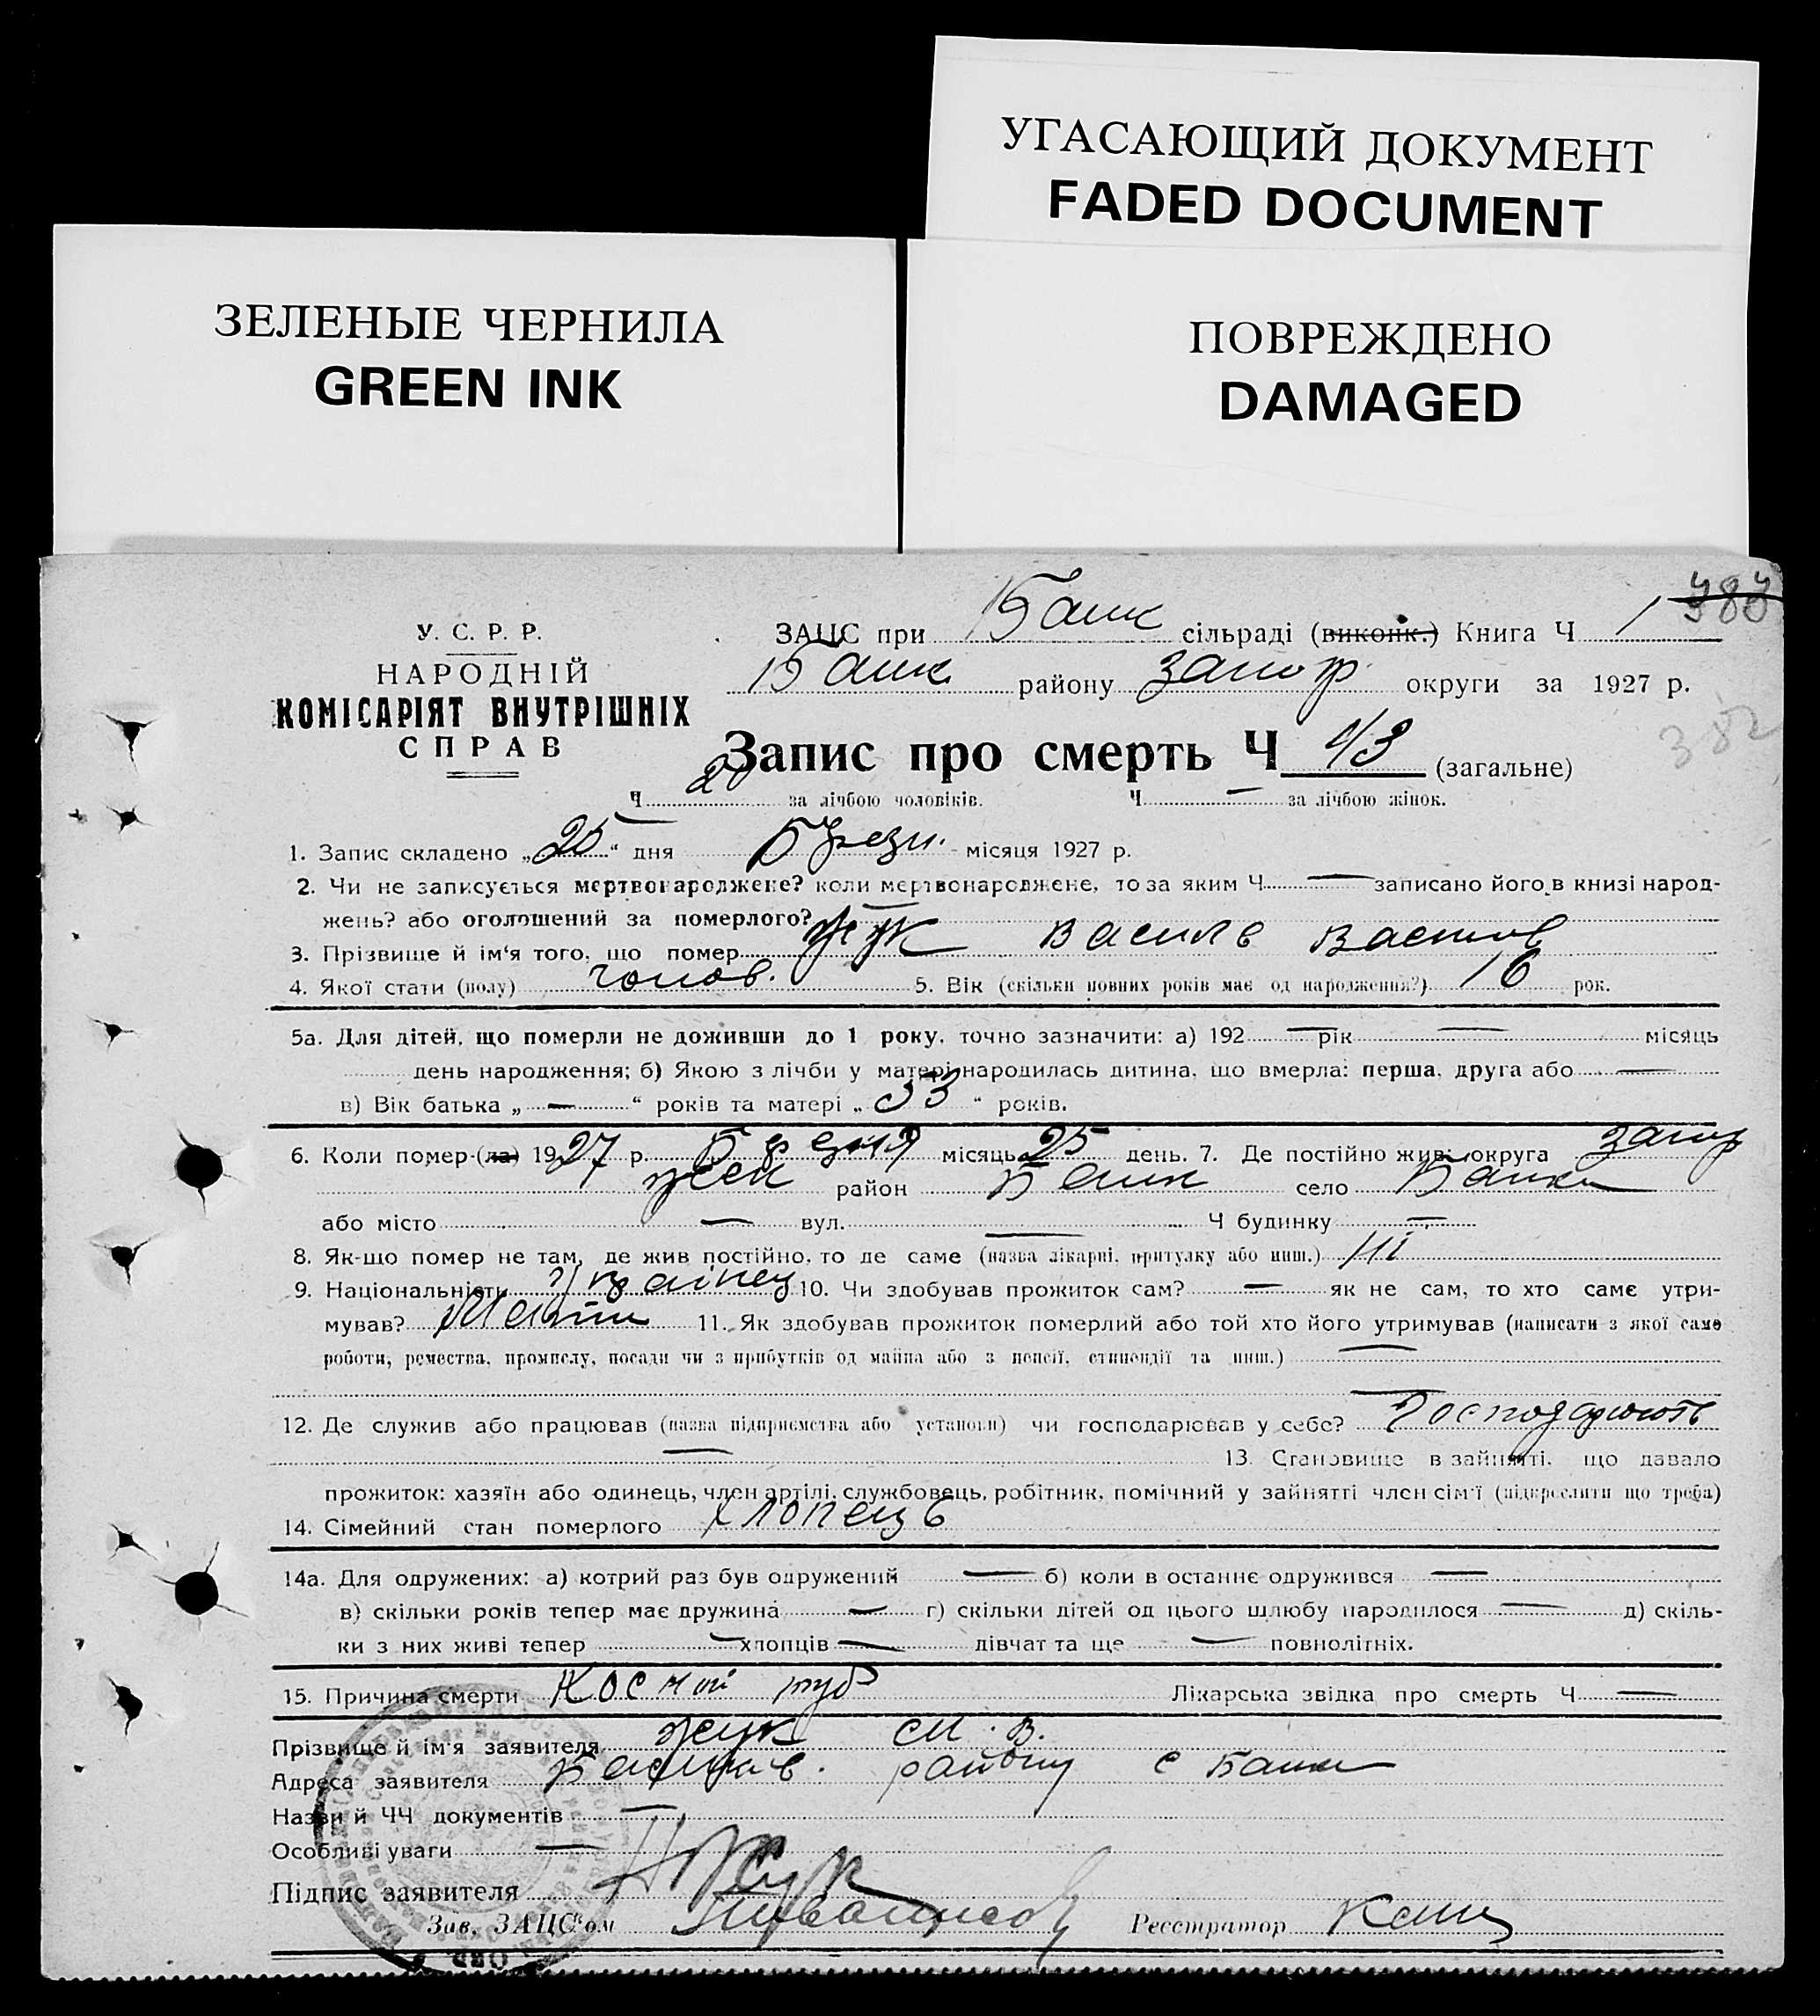 УГАСАЮЩИЙ ДОКУМЕНТ
FADED DOCUMENT
ЗЕЛЕНЫЕ ЧЕРНИЛА
GREEN INK
ПОВРЕЖДЕНО
DAMAGED
У. С. Р. Р.
НАРОДНІЙ
КОМІСАРІЯТ ВНУТРІШНІХ
СПРАВ
383
ЗАЦС при Башк сільраді (виконк.) Книга Ч 1
Башк. району Запор округи за 1927 р.
382
Запис про смерть Ч 43 (загальне)
Ч 20 за лічбою чоловіків. Ч — за лічбою жінок.
1. Запис складено „25“ дня Березн. місяця 1927 р.
2. Чи не записується мертвонароджене? коли мертвонароджене, то за яким Ч — записано його в книзі народ-
жень? або оголошений за померлого? —
3. Прізвище й ім'я того, що помер Жук Василь Васильов
4. Якої стати (полу) чолов. 5. Вік (скільки повних років має од народження?) 16 рок.
5а. Для дітей, що померли не доживши до 1 року, точно зазначити: а) 192 — рік — місяць
день народження; б) Якою з лічби у матері народилась дитина, що вмерла: перша, друга або —
в) Вік батька „ — “ років та матері „ 53 “ років.
6. Коли помер-(ла) 1927 р. Березня місяць 25 день. 7. Де постійно жив: округа Запор
район Башк село Башки
або місто — вул. — Ч будинку —
8. Як-що помер не там, де жив постійно, то де саме (назва лікарні, притулку або инш.)
9. Національність Українец 10. Чи здобував прожиток сам? — як не сам, то хто саме утри-
мував? Мати 11. Як здобував прожиток померлий або той хто його утримував (написати з якої саме
роботи, ремества, промислу, посади чи з прибутків од майна або з пенсії, стипендії та инш.) —
—
12. Де служив або працював (назва підприємства або установи) чи господарював у себе? Господарюють
— 13. Становище в зайнятті, що давало
прожиток: хазяїн або одинець, член артілі, службовець, робітник, помічний у зайнятті член сім'ї (підкреслити що треба)
14. Сімейний стан померлого хлопець
14а. Для одружених: а) котрий раз був одружений — б) коли в останнє одружився —
в) скільки років тепер має дружина — г) скільки дітей од цього шлюбу народилося — д) скіль-
ки з них живі тепер — хлопців — дівчат та ще — повнолітніх.
15. Причина смерти Косной туб Лікарська звідка про смерть Ч —
Прізвище й ім'я заявителя Жук М. В.
Адреса заявителя району с Башки
Назви й ЧЧ документів —
Особливі уваги —
Підпис заявителя Жук
Зав. ЗАЦС'ом Реєстратор